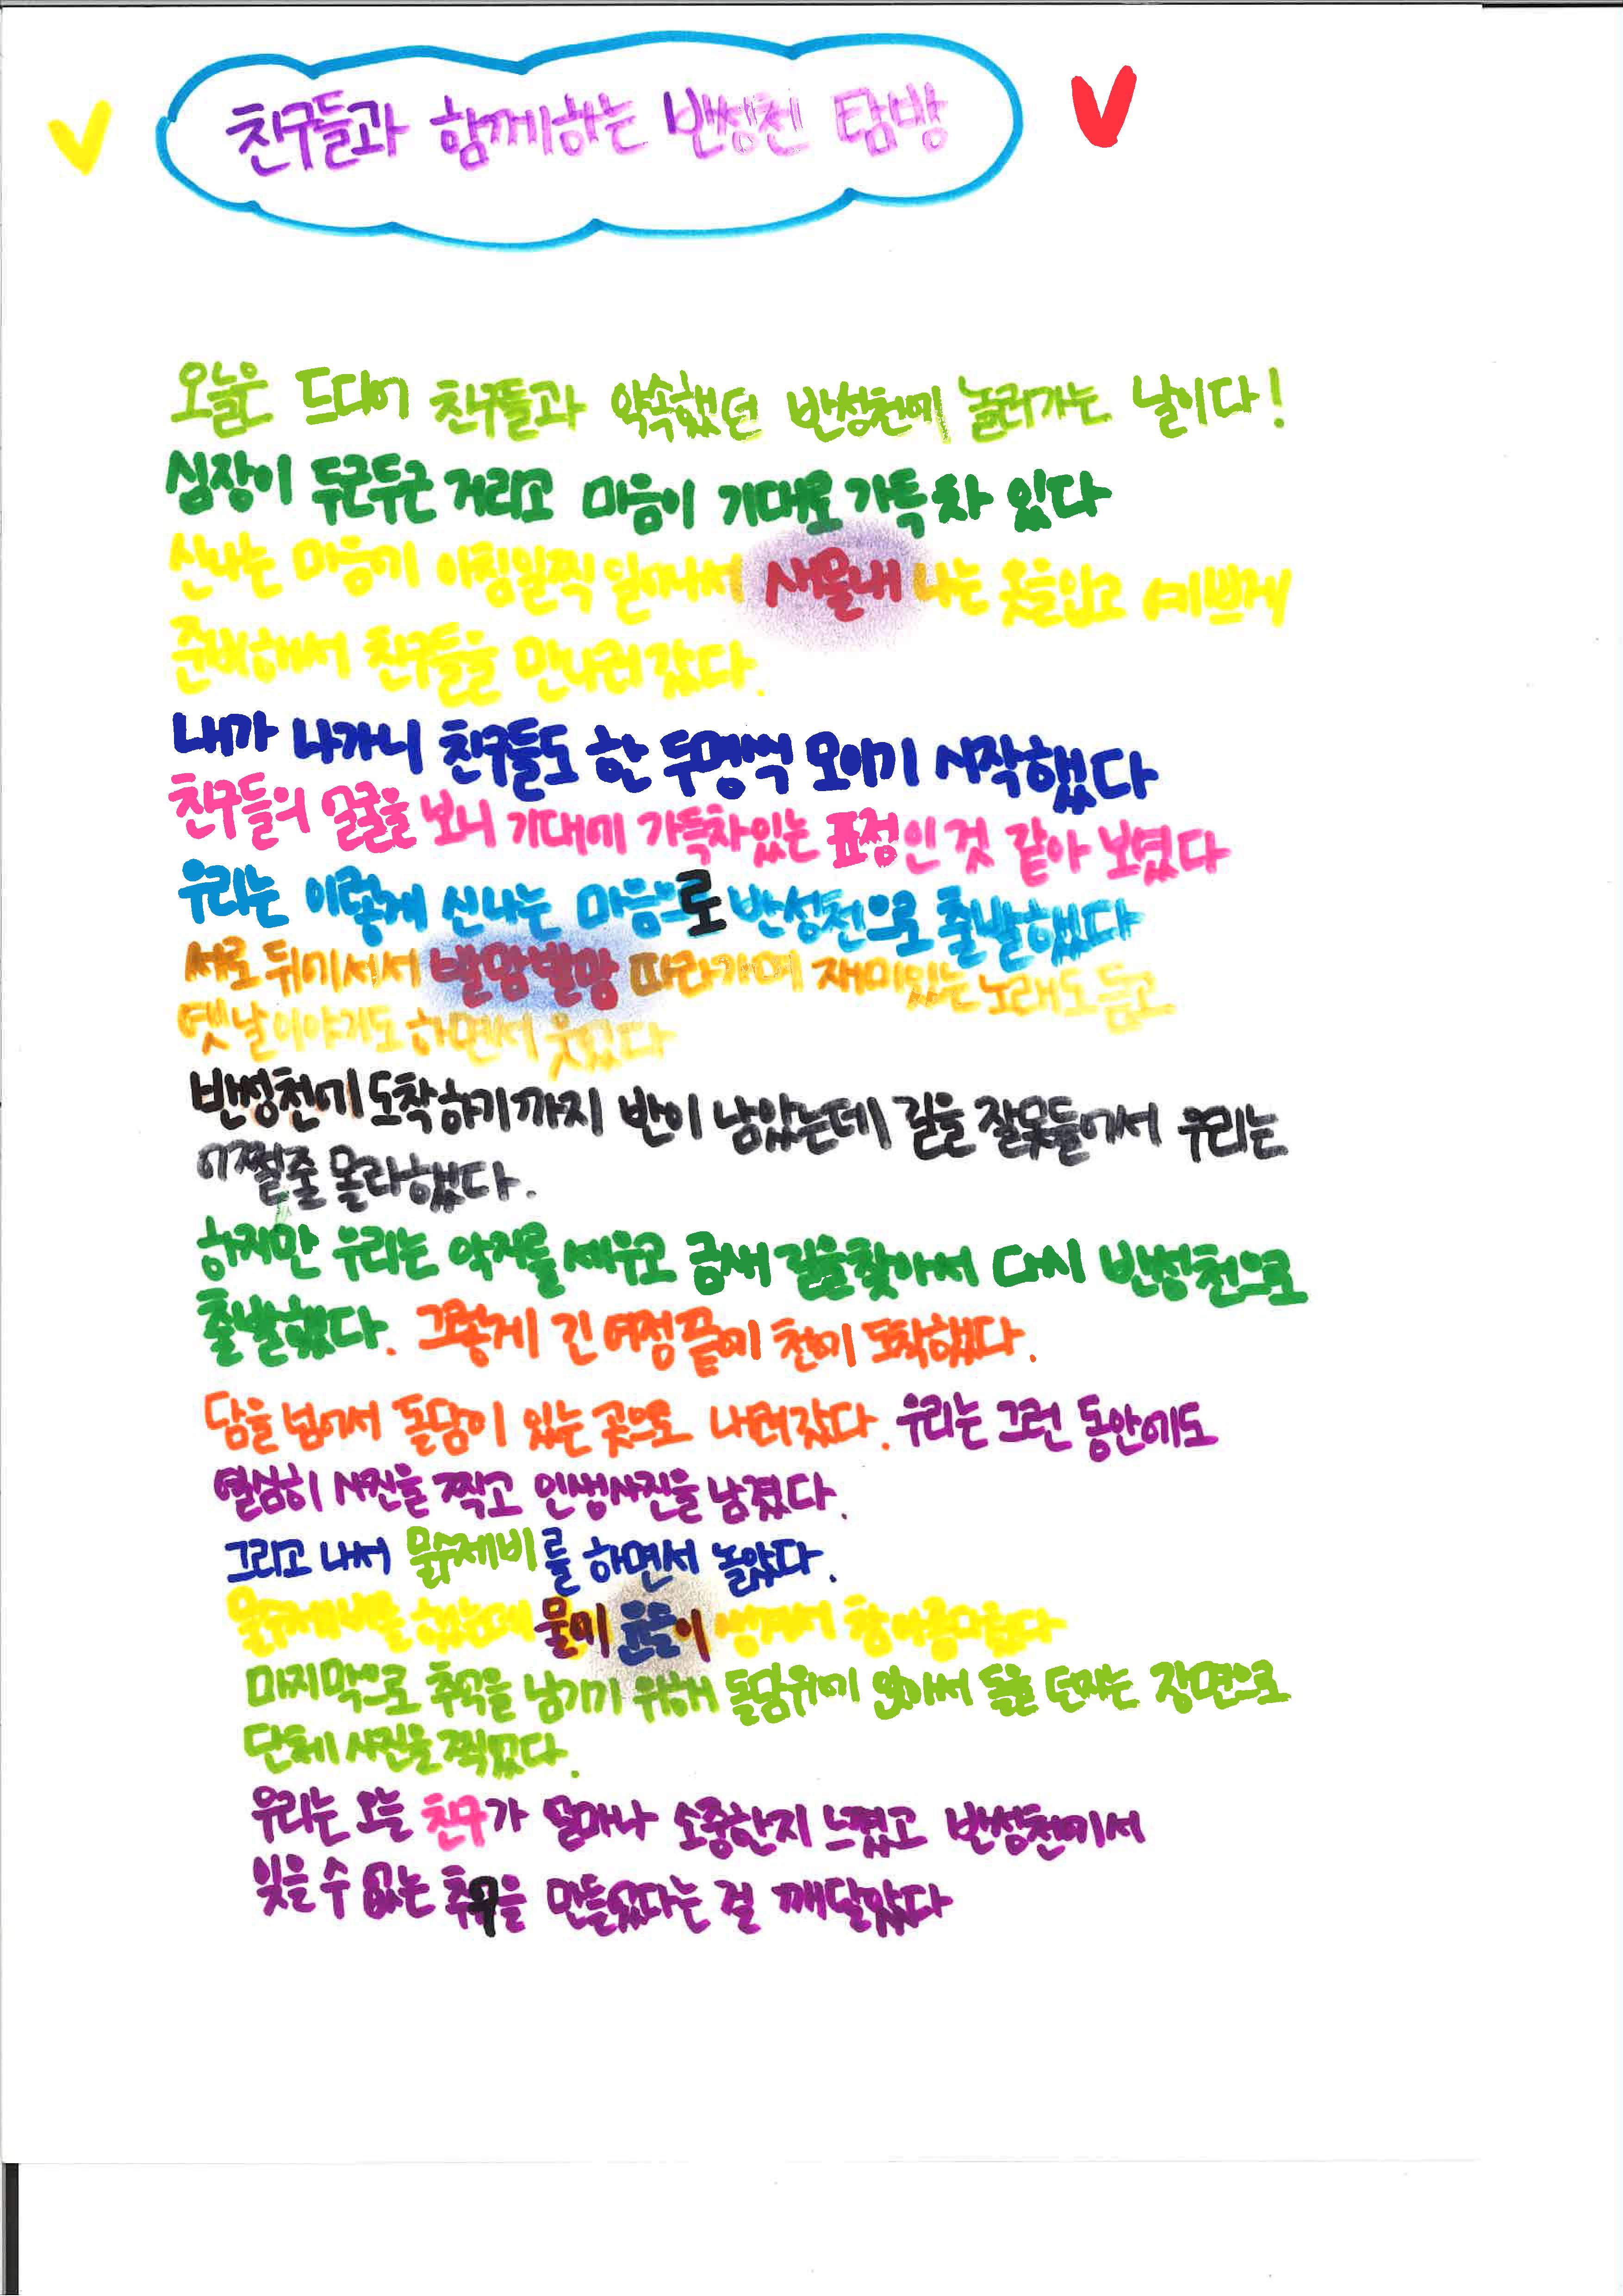 친구들과 함께하는 반성천 탐방
오늘은 드디어 친구들과 약속했던 반성천에 놀러가는 날이다!
심장이 두근두근 거리고 마음이 기대로 가득 차 있다
신나는 마음에 아침일찍 일어나서 새물내 나는 옷을입고 예쁘게
준비해서 친구들을 만나러갔다.
내가 나가니 친구들도 한 두명씩 모이기 시작했다
친구들의 얼굴을 보니 기대에 가득차있는 표정인 것 같아 보였다
우리는 이렇게 신나는 마음으로 반성천으로 출발했다
서로 뒤에서서 발맘발맘 따라가며 재미있는 노래도 듣고
옛날이야기도 하면서 웃었다
반성천에 도착하기까지 반이 남았는데 길을 잘못들어서 우리는
어쩔줄 몰라했다.
하지만 우리는 악지를 세우고 금새 길을찾아서 다시 반성천으로
출발했다. 그렇게 긴 여정끝에 천에 도착했다.
담을 넘어서 돌담이 있는 곳으로 내려갔다. 우리는 그런 동안에도
열심히 사진을 찍고 인생사진을 남겼다.
그리고 나서 물수제비를 하면서 놀았다.
물수제비를 하는데 물에 윤슬이 생겨서 참 아름다웠다
마지막으로 추억을 남기기 위해 돌담위에 앉아서 돌을 던지는 장면으로
단체사진을 찍었다.
우리는 오늘 친구가 얼마나 소중한지 느꼈고 반성천에서
잊을 수 없는 추억을 만들었다는 걸 깨달았다